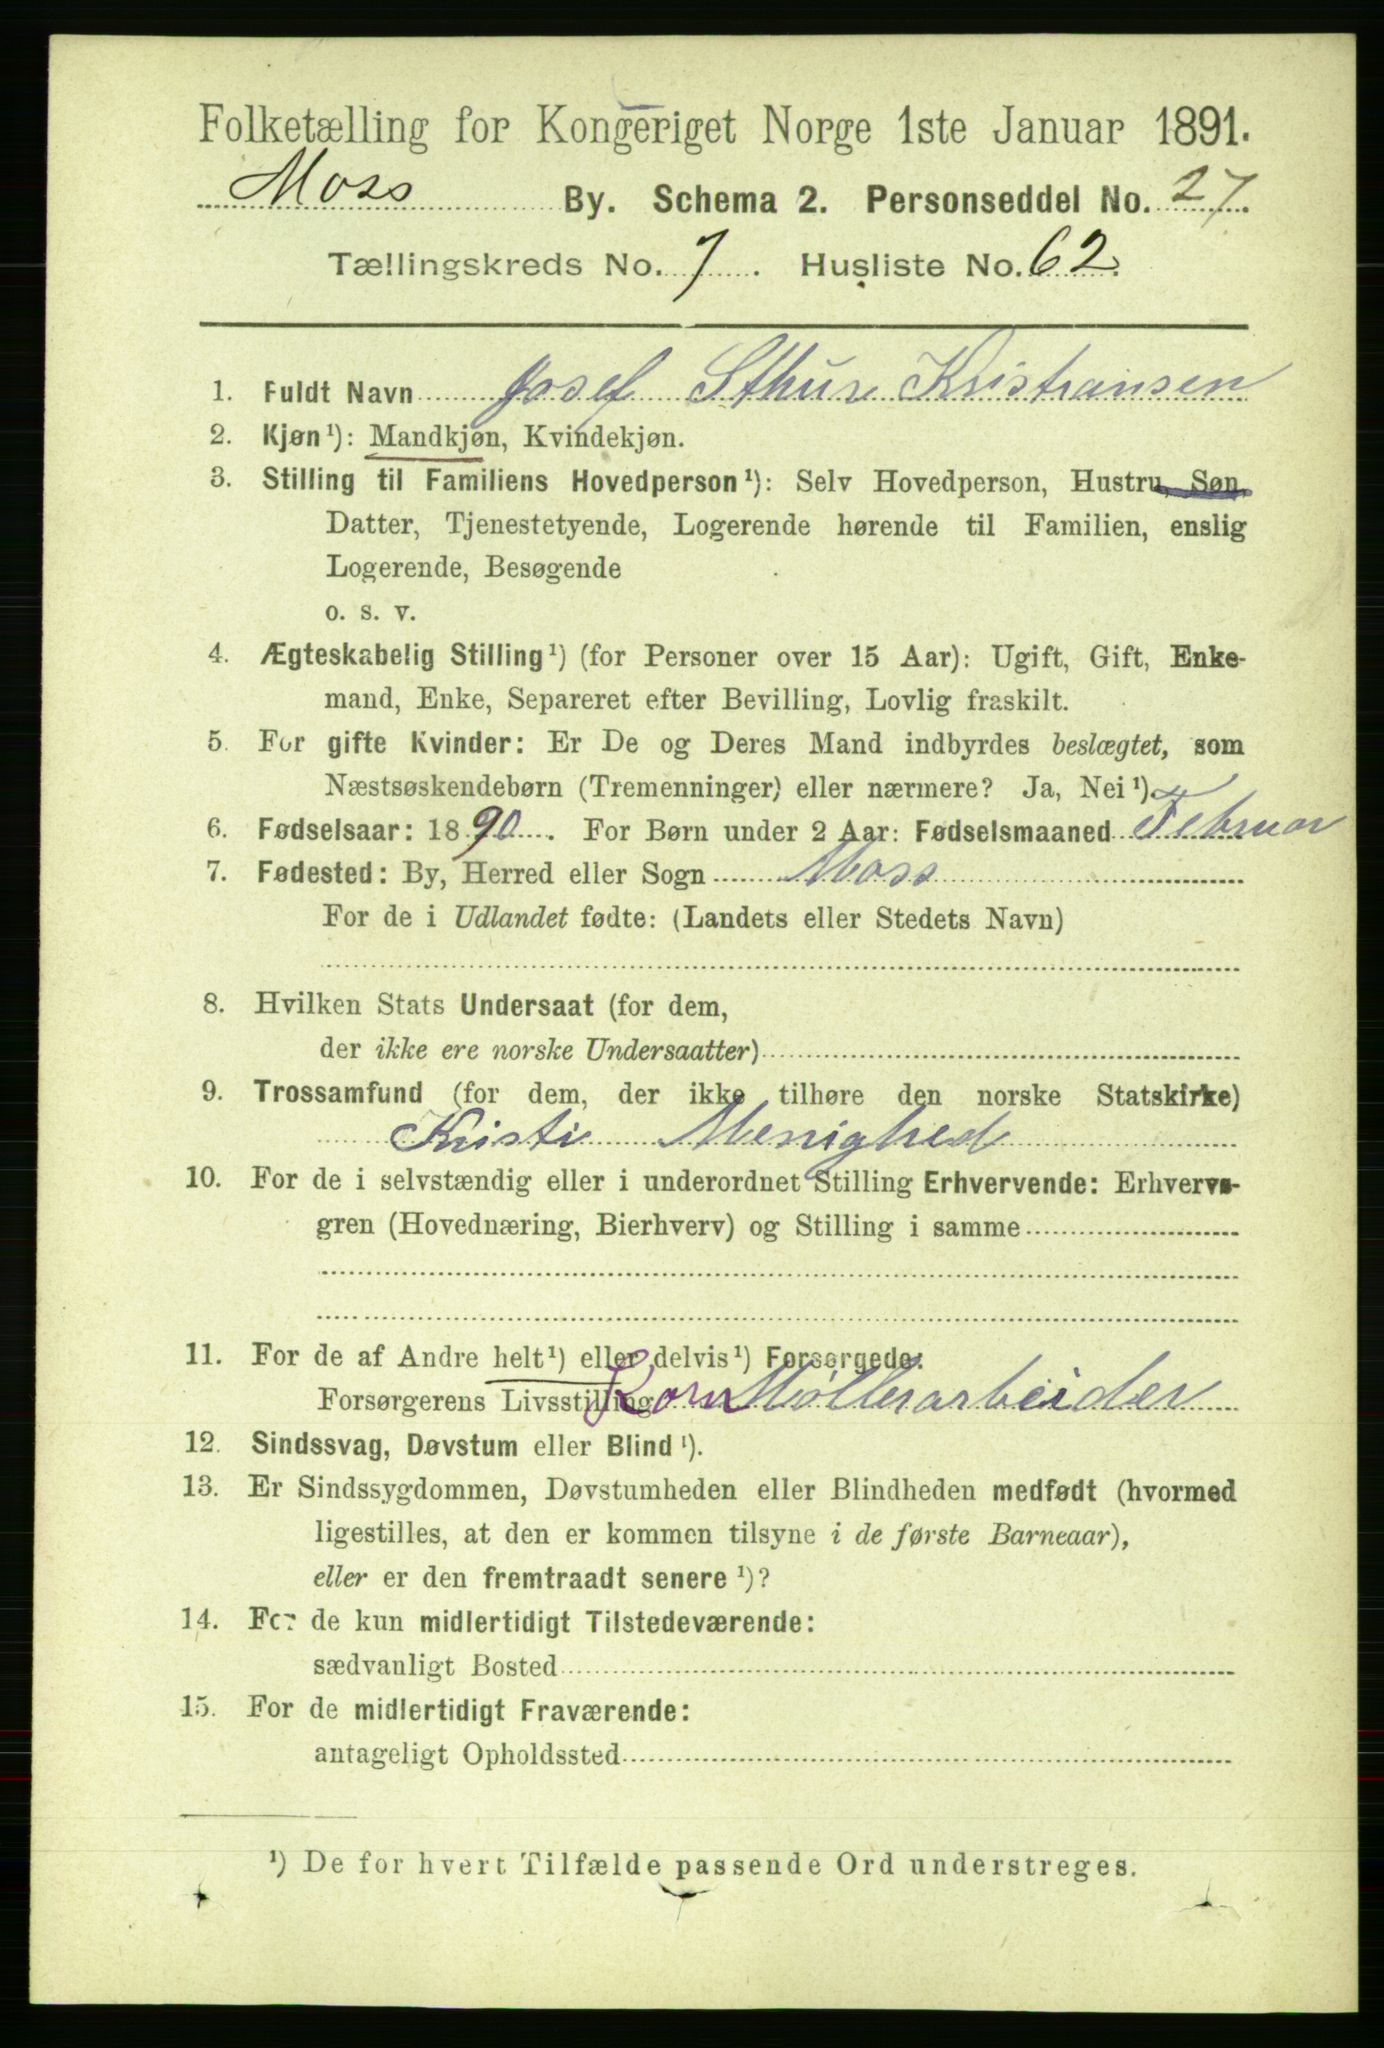 Folketælling for Kongeriget Norge 1ste Januar 1891.
Moss By. Schema 2. Personseddel No. 27.
Tællingskreds No. 7. Husliste No. 62.
1. Fuldt Navn Josef Sthur Kristiansen
2. Kjøn¹): Mandkjøn, Kvindekjøn.
3. Stilling til Familiens Hovedperson¹): Selv Hovedperson, Hustru, Søn,
Datter, Tjenestetyende, Logerende hørende til Familien, enslig
Logerende, Besøgende
o. s. v.
4. Ægteskabelig Stilling¹) (for Personer over 15 Aar): Ugift, Gift, Enke-
mand, Enke, Separeret efter Bevilling, Lovlig fraskilt.
5. For gifte Kvinder: Er De og Deres Mand indbyrdes beslægtet, som
Næstsøskendebørn (Tremenninger) eller nærmere? Ja, Nei¹).
6. Fødselsaar: 1890. For Børn under 2 Aar: Fødselsmaaned Februar
7. Fødested: By, Herred eller Sogn Moss
For de i Udlandet fødte: (Landets eller Stedets Navn)
8. Hvilken Stats Undersaat (for dem,
der ikke ere norske Undersaatter)
9. Trossamfund (for dem, der ikke tilhøre den norske Statskirke)
Kristi Menighed
10. For de i selvstændig eller i underordnet Stilling Erhvervende: Erhvervs-
gren (Hovednæring, Bierhverv) og Stilling i samme
11. For de af Andre helt¹) eller delvis¹) Forsørgede:
Forsørgerens Livsstilling Korn Møllerarbeider
12. Sindssvag, Døvstum eller Blind¹).
13. Er Sindssygdommen, Døvstumheden eller Blindheden medfødt (hvormed
ligestilles, at den er kommen tilsyne i de første Barneaar),
eller er den fremtraadt senere¹)?
14. For de kun midlertidigt Tilstedeværende:
sædvanligt Bosted
15. For de midlertidigt Fraværende:
antageligt Opholdssted
¹) De for hvert Tilfælde passende Ord understreges.